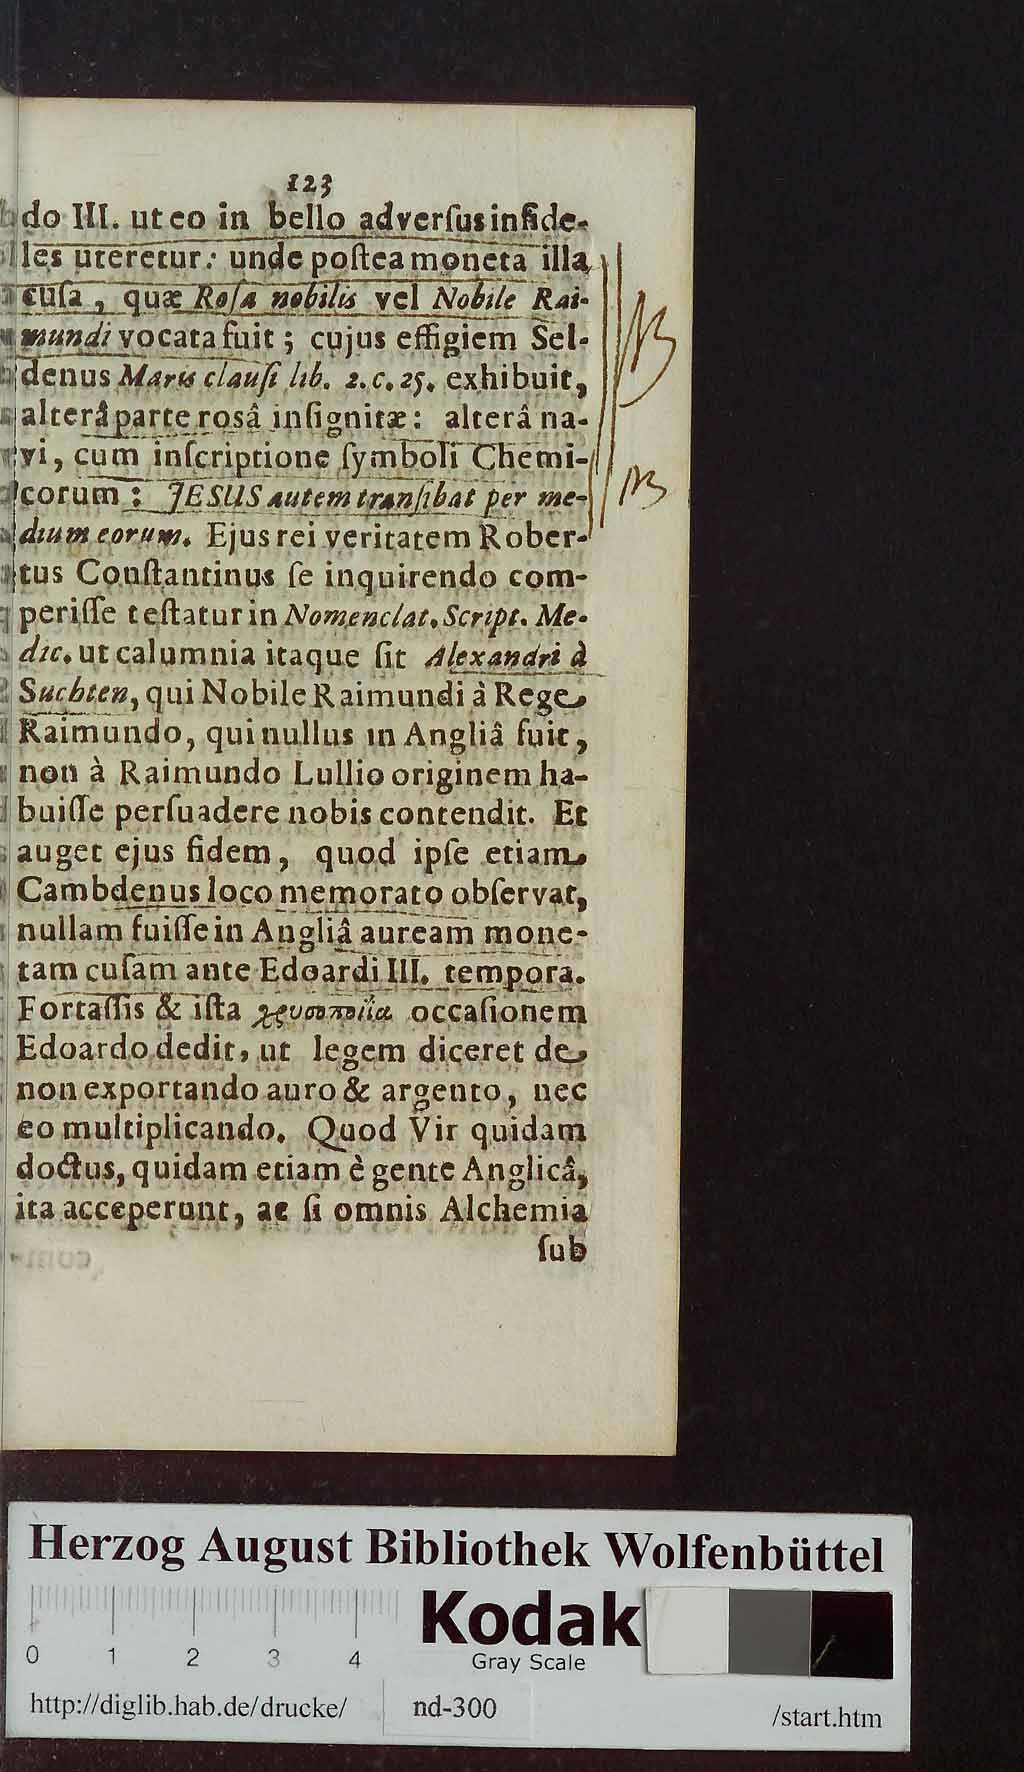 123
do III. ut eo in bello adverſus infide-
les uteretur: unde poſtea moneta illa
cuſa, quæ Roſa nobilis vel Nobile Rai-
mundi vocata fuit; cujus effigiem Sel-
denus Maris clauſi lib. 2. c. 25. exhibuit,
alterâ parte rosâ inſignitæ: alterâ na-
vi, cum inſcriptione ſymboli Chemi-
corum: JESUS autem tranſibat per me-
dium eorum. Ejus rei veritatem Rober-
tus Conſtantinus ſe inquirendo com-
periſſe teſtatur in Nomenclat. Script. Me-
dic. ut calumnia itaque ſit Alexandri à
Suchten, qui Nobile Raimundi à Rege
Raimundo, qui nullus in Angliâ fuit,
non à Raimundo Lullio originem ha-
buiſſe perſuadere nobis contendit. Et
auget ejus fidem, quod ipſe etiam
Cambdenus loco memorato obſervat,
nullam fuiſſe in Angliâ auream mone-
tam cuſam ante Edoardi III. tempora.
Fortaſſis & iſta χρυσοποιΐα occaſionem
Edoardo dedit, ut legem diceret de
non exportando auro & argento, nec
eo multiplicando. Quod Vir quidam
doctus, quidam etiam è gente Anglicâ,
ita acceperunt, ac ſi omnis Alchemia
ſub
NB
NB
Herzog August Bibliothek Wolfenbüttel
0 1 2 3 4
Kodak
Gray Scale
http://diglib.hab.de/drucke/ nd-300 /start.htm